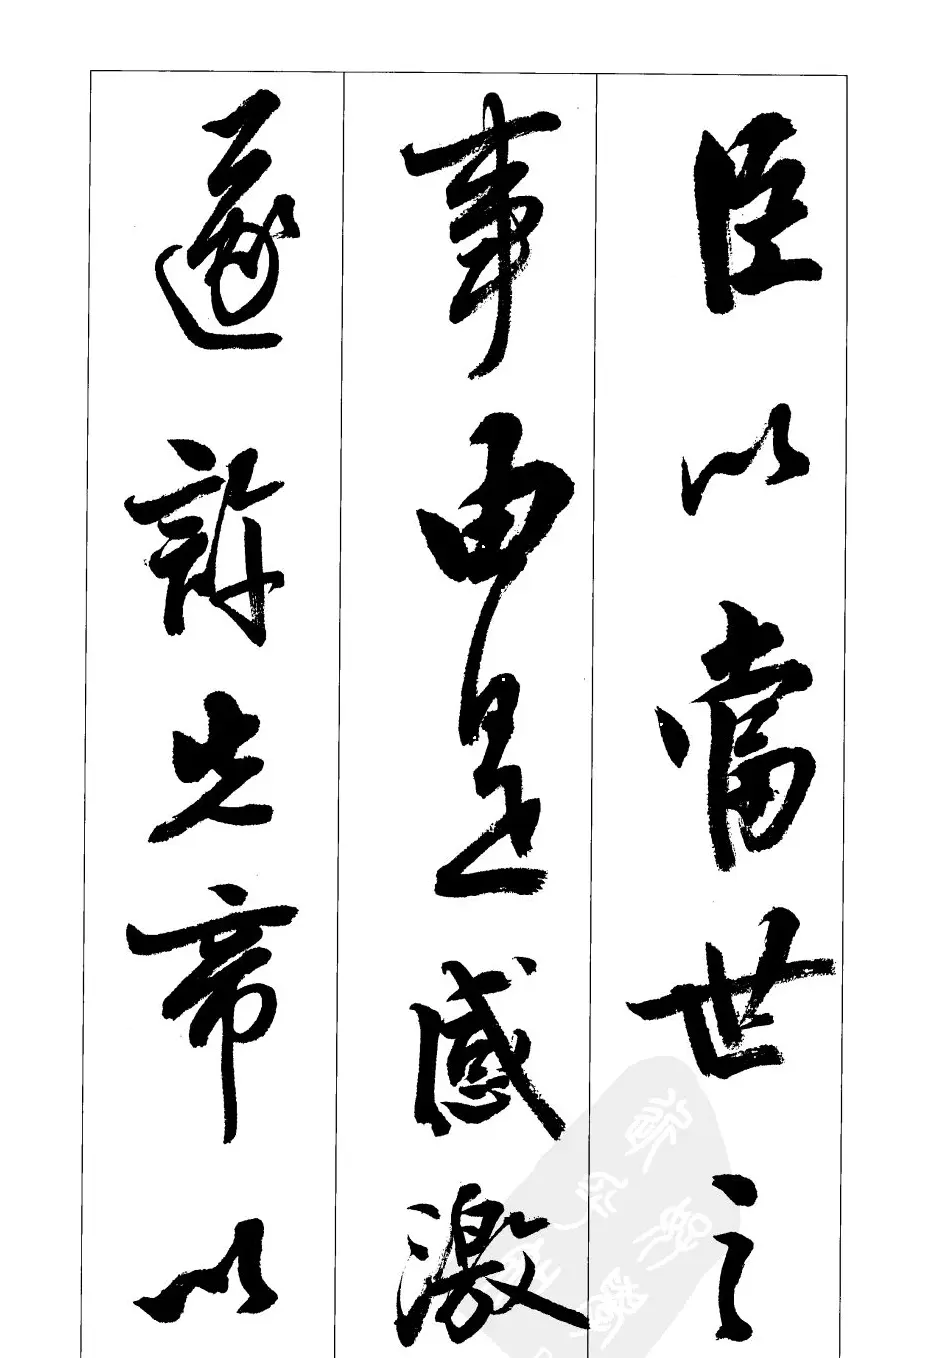 臣以當世之
事由是感激
遂許先帝以